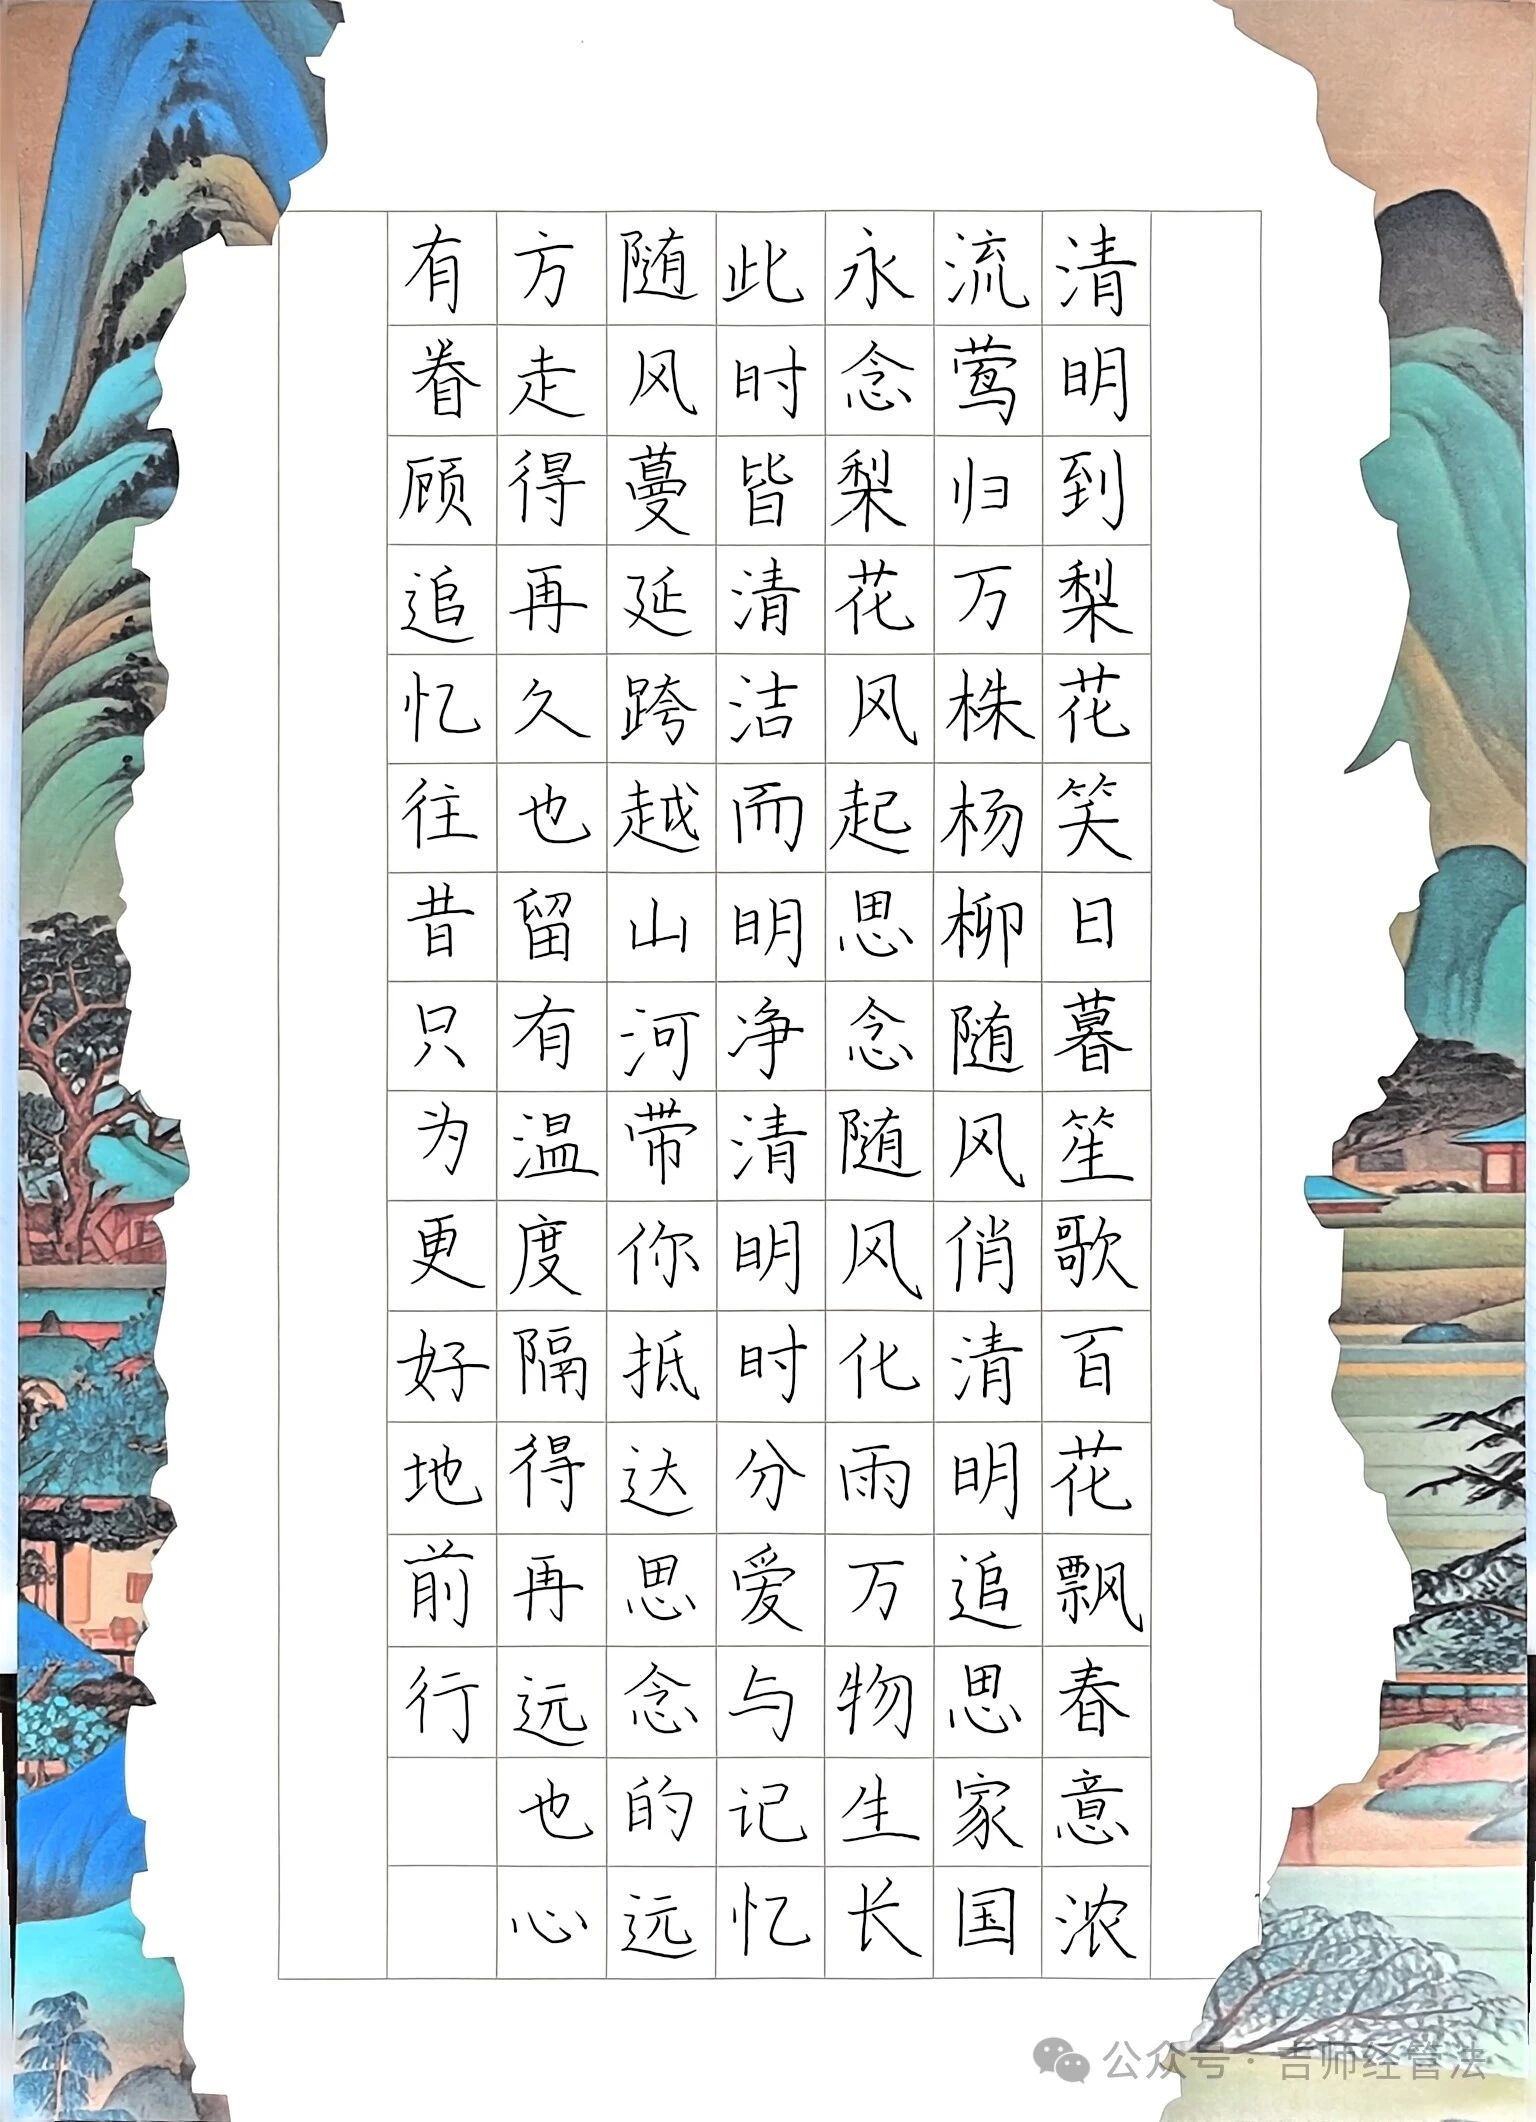 清明到梨花笑日暮笙歌百花飘春意浓
流莺归万株杨柳随风俏清明追思家国
永念梨花风起思念随风化雨万物生长
此时皆清洁而明净清明时分爱与记忆
随风蔓延跨越山河带你抵达思念的远
方走得再久也留有温度隔得再远也心
有眷顾追忆往昔只为更好地前行
公众号·吉师经管法